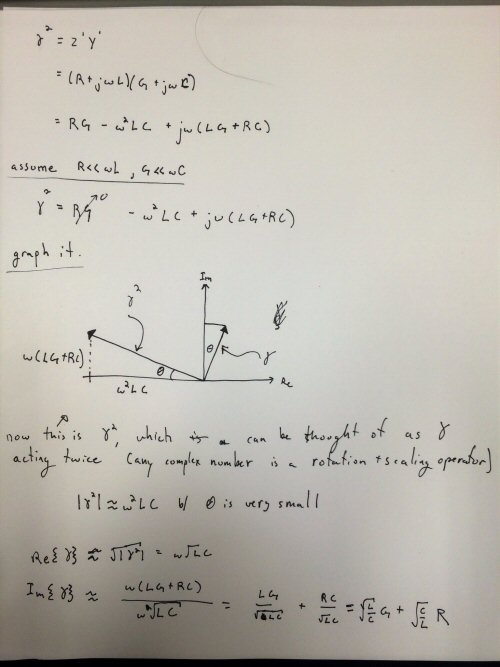 γ² = z'y'
= (R+jωL)(G+jωC)
= RG - ω²LC + jω(LG+RC)
assume R<<ωL, G<<ωC
γ² = RG 0 - ω²LC + jω(LG+RC)
graph it.
Im
γ²
ω(LG+RC)
θ
θ
γ
ω²LC
Re
now this is γ², which can be thought of as γ
acting twice (any complex number is a rotation + scaling operator)
|γ²| ≈ ω²LC b/ θ is very small
Re{γ} ≈ √|γ²| = ω√LC
Im{γ} ≈ ω(LG+RC) / ω√LC = LG / √LC + RC / √LC = √L/C G + √C/L R